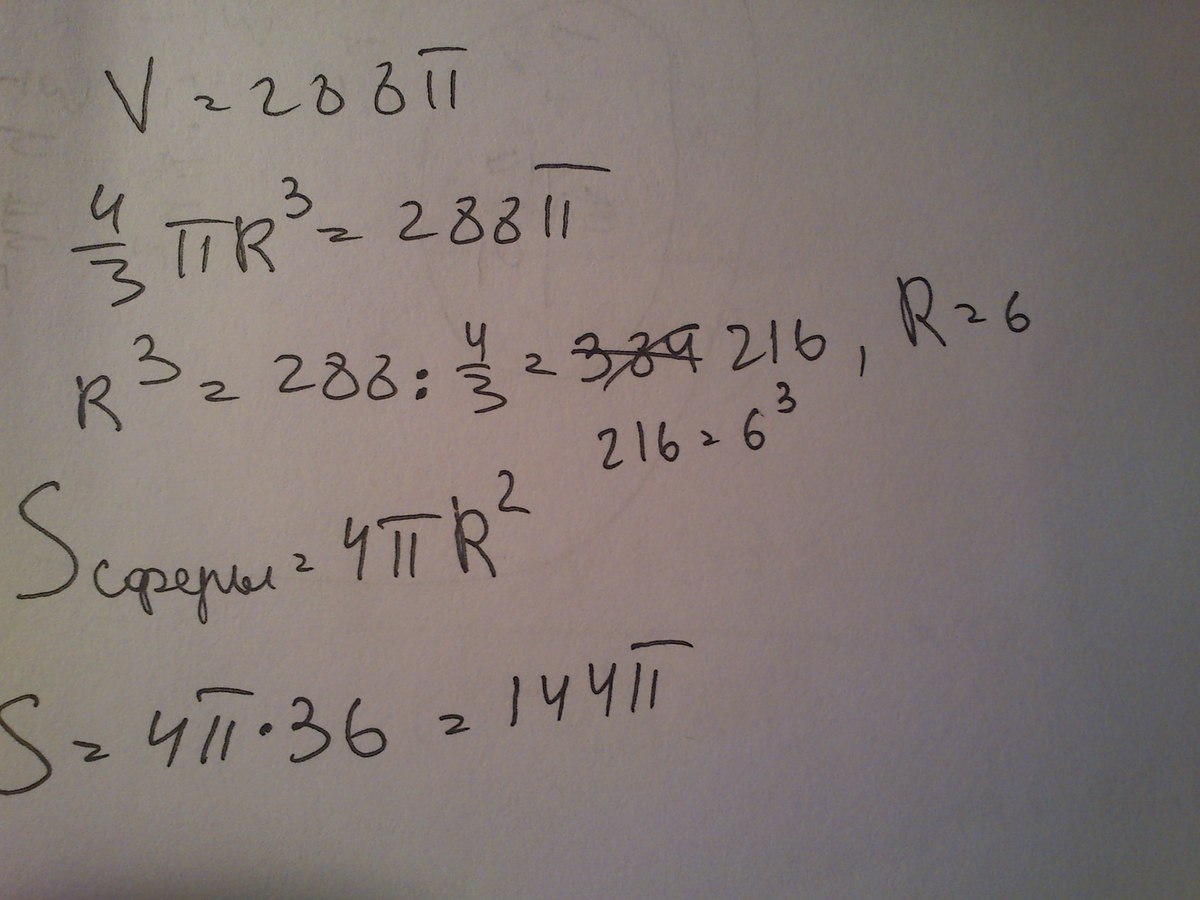 V = 288π
4/3 πR³ = 288π
R³ = 288 : 4/3 = 384 216, R = 6
216 = 6³
Sсферы = 4πR²
S = 4π·36 = 144π